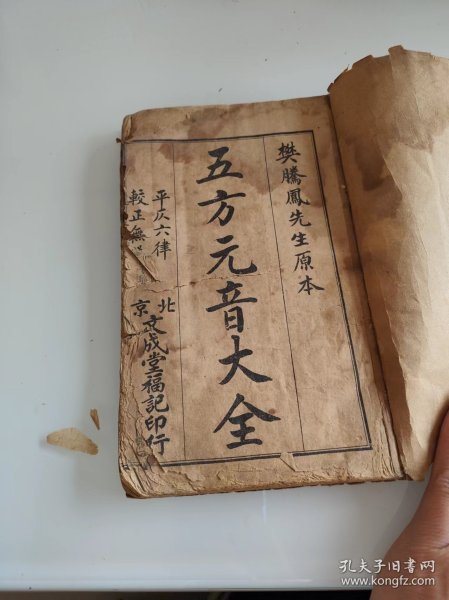 樊騰鳳先生原本
五方元音大全
平仄六律
較正無
北京
文成堂福記印行
孔夫子旧书网
www.kongfz.com